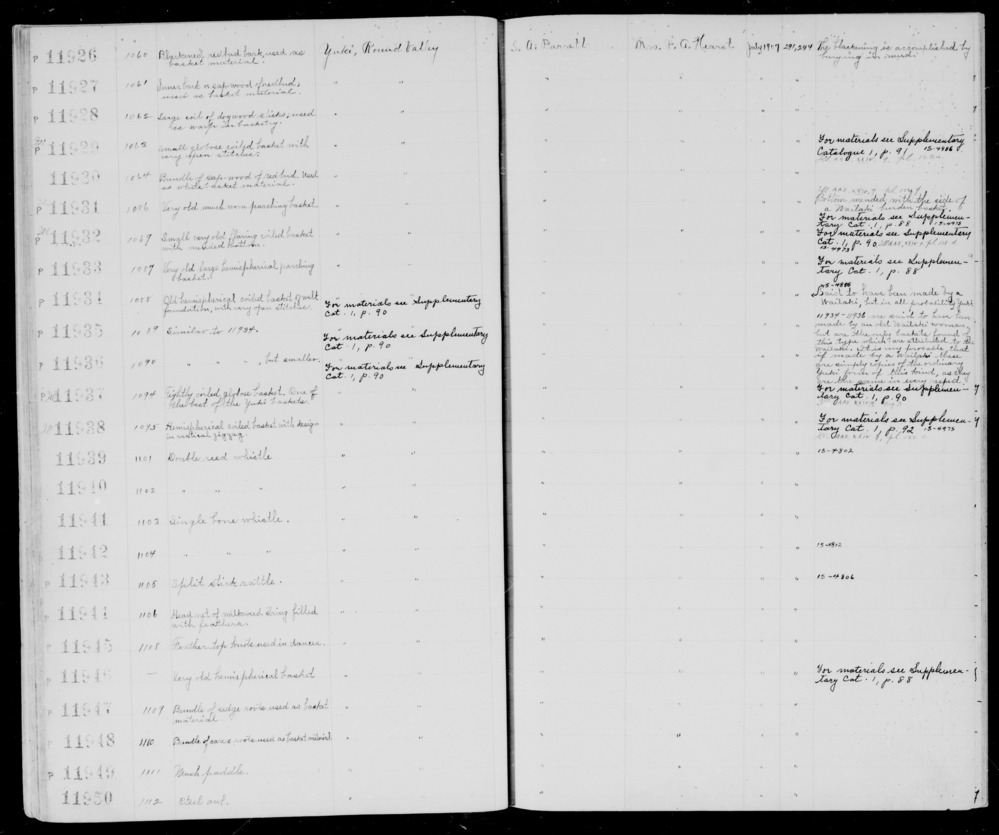 P 11926 1060 Blackened redbud bark used as basket material. Yuki, Round Valley S. A. Barrett Mrs. P. A. Hearst July 1907 291,294 The blackening is accomplished by burying in mud.
P 11927 1061 Inner bark or sap-wood of redbud, used as basket material. " "
P 11928 1062 Large coil of dogwood sticks, used as warps in basketry. " "
P 11929 1063 Small globose coiled basket with very open stitches. " " For materials see Supplementary Catalogue 1, p. 91 15-4986
11930 1064 Bundle of sap-wood of red bud. Used as white basket material. " "
P 11931 1086 Very old much worn parching basket. " " Bottom mended with the side of a Wailaki burden basket.
For materials see Supplementary Cat. 1, p. 88 15-4975
P 11932 1087 Small very old flaring coiled basket with mended bottom. " " For materials see Supplementary Cat. 1, p. 90
15-4973
P 11933 1087 Very old large hemispherical parching basket. For materials see Supplementary Cat. 1, p. 88
15-4886
P 11934 1088 Old hemispherical coiled basket foundation, with very open stitches. For materials see Supplementary Cat. 1, p. 90 Said to have been made by a Wailaki, but in all probability Yuki
P 11935 1089 Similar to 11934. For materials see Supplementary Cat. 1, p. 90 11934-11936 are said to have been made by an old Wailaki woman,
but are the only baskets found of this type which are attributed to the Wailaki. It is very probable that
P 11936 1090 " " , but smaller. For materials see Supplementary Cat. 1, p. 90 if made by a Wailaki these are simply copies of the ordinary Yuki form of this kind, as they are the same in every respect.
11937 1094 Tightly coiled globose basket. One of the best of the Yuki baskets. For materials see Supplementary Cat. 1, p. 90
11938 1095 Hemispherical coiled basket with design in vertical zigzag. For materials see Supplementary Cat. 1, p. 92 15-4975
11939 1101 Double reed whistle " " 15-4802
11940 1102 " " " " "
11941 1103 Single bone whistle. " "
11942 1104 " " " " " 15-4802
P 11943 1105 Split stick rattle. " " 15-4806
P 11944 1106 Head net of milkweed string filled with feathers. " "
P 11945 1108 Feather top knots used in dances. " "
P 11946 — Very old hemispherical basket " " For materials see Supplementary Cat. 1, p. 88
P 11947 1109 Bundle of sedge roots used as basket material " "
P 11948 1110 Bundle of carex roots used as basket material " "
P 11949 1111 Mush paddle. " "
11950 1112 Steel awl. " "